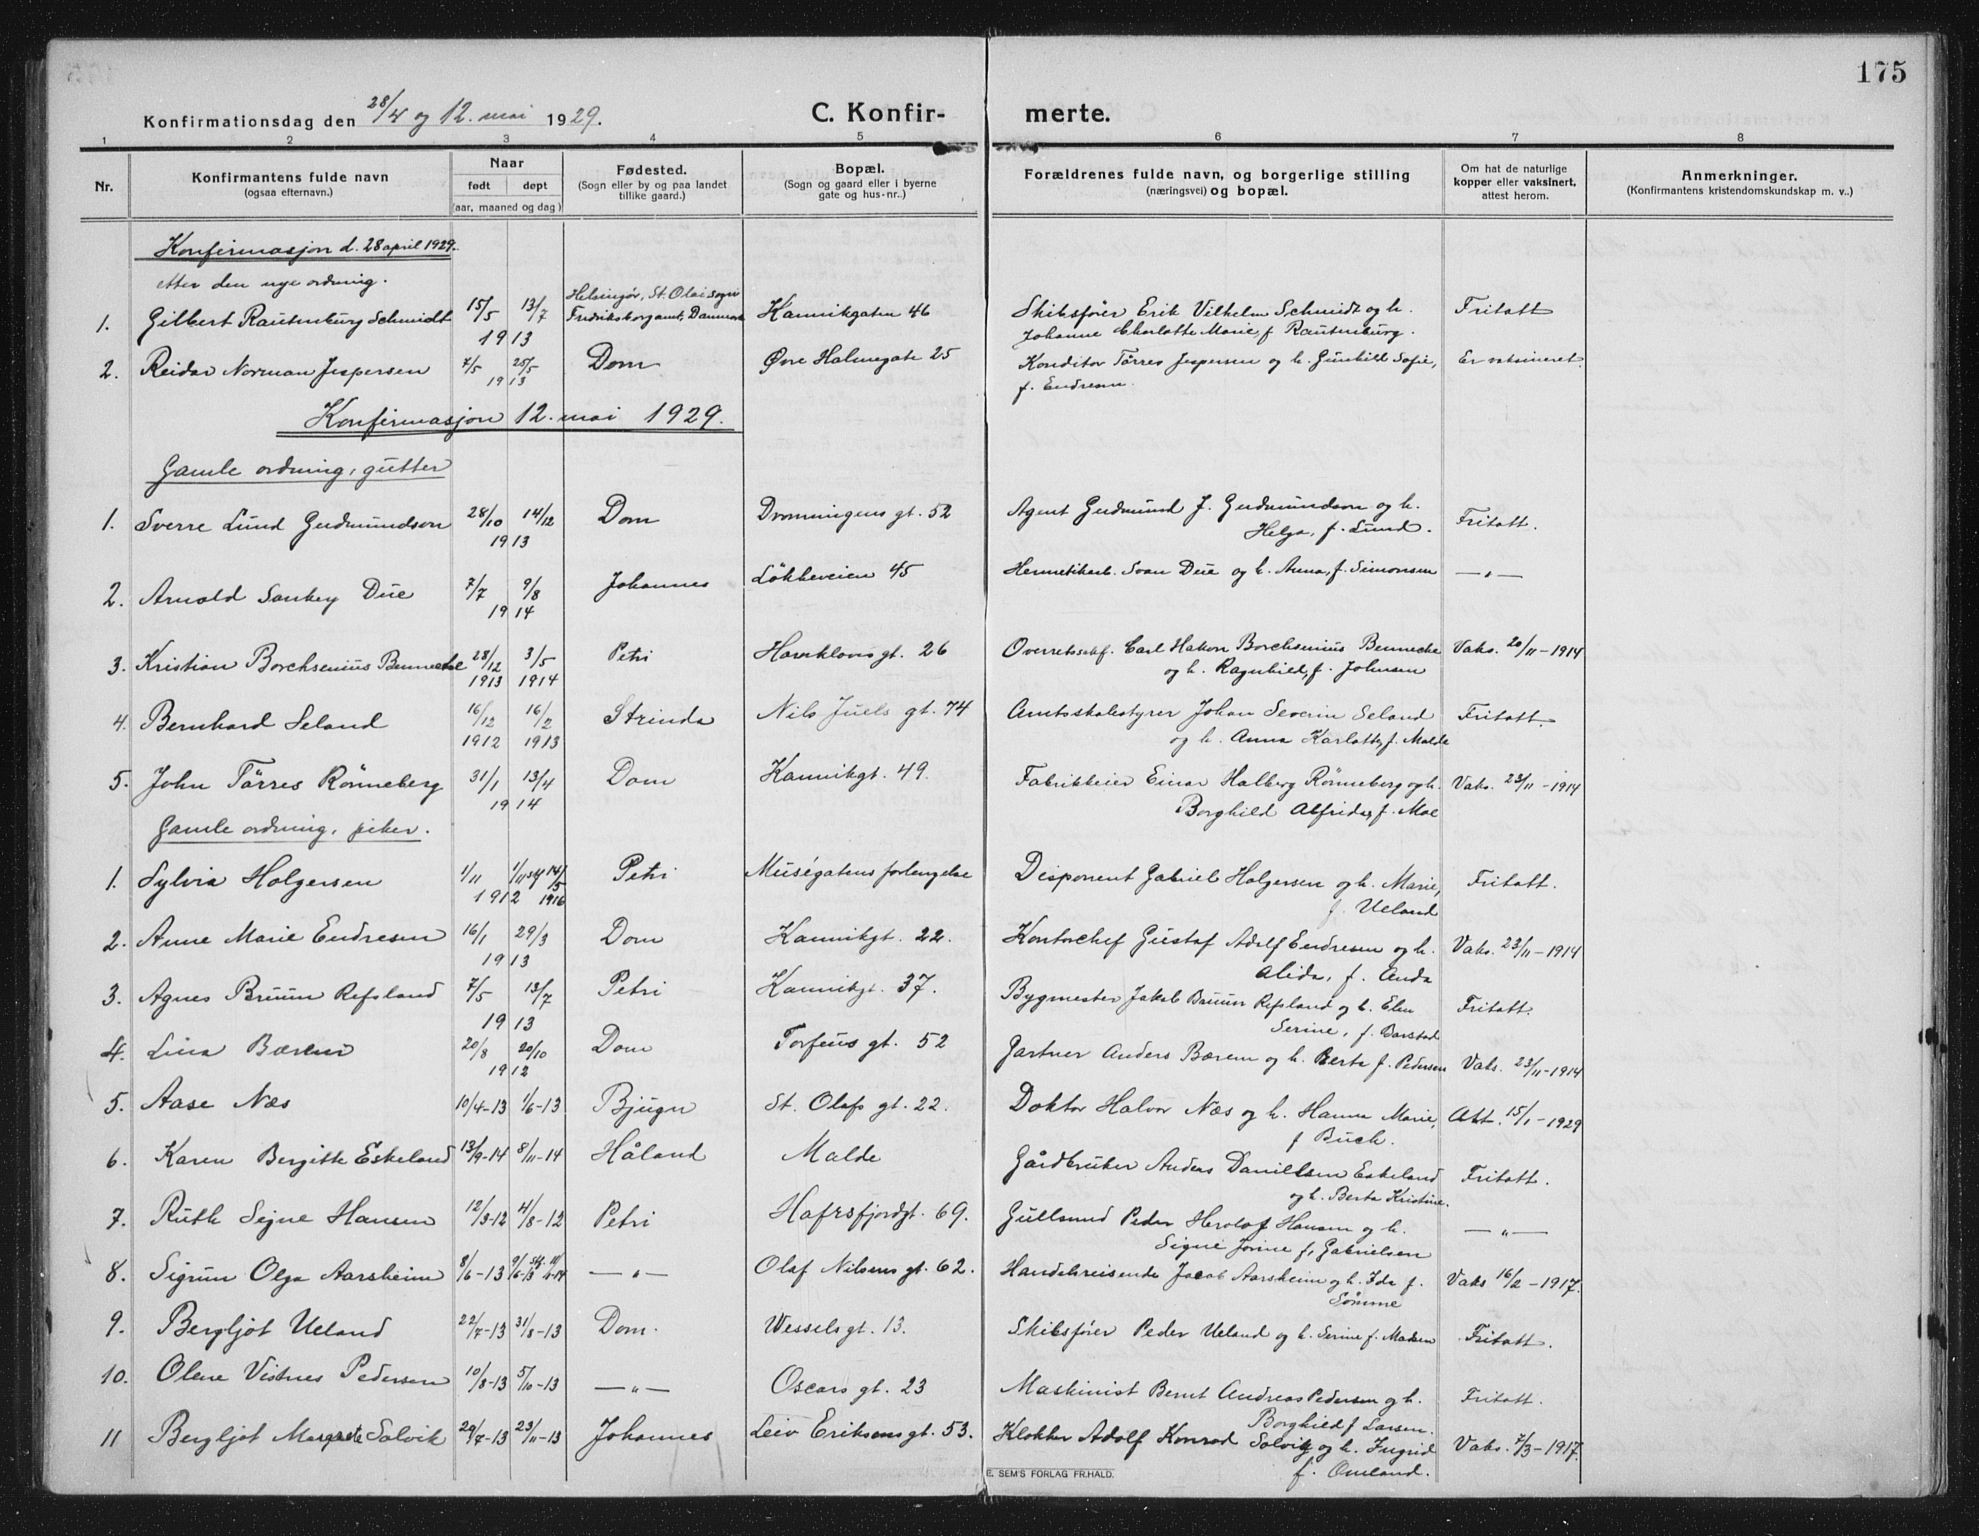 175
Konfirmationsdag den 28/4 og 12. mai 1929. C. Konfirmerte.
1 2 3 4 5 6 7 8
Nr. Konfirmantens fulde navn (ogsaa efternavn.) Naar født døpt (aar, maaned og dag) Fødested. (Sogn eller by og paa landet tillike gaard.) Bopæl. (Sogn og gaard eller i byerne gate og hus-nr..) Forældrenes fulde navn, og borgerlige stilling (næringsvei) og bopæl. Om hat de naturlige kopper eller vaksinert, attest herom. Anmerkninger. (Konfirmantens kristendomskundskap m. v..)
Konfirmasjon d. 28 april 1929.
etter den nye ordning.
1. Gilbert Rautenburg Schmidt 15/5 13/7 1913 Helsingør, St. Olai sogn Fredriksborg amt, Danmark Kannikgaten 46 Skibsfører Erik Vilhelm Schmidt og h. Fritatt
Johanne Charlotte Marie, f. Rautenburg.
2. Reidar Norman Jespersen 7/5 25/5 1913 Dom Øvre Holmegate 25 Konditor Tørres Jespersen og h. Gunhild Sofie, Er vaksineret.
f. Endresen.
Konfirmasjon 12. mai 1929.
Gamle ordning, gutter
1. Sverre Lund Gudmundson 28/10 14/12 1913 Dom Dronningens gt. 52 Agent Gudmund J. Gudmundson og h. Fritatt.
Helga, f. Lund.
2. Arnold Sankey Due 7/7 9/8 1914 Johannes Løkkeveien 45 Hermetikarb. Svan Due og h. Anna, f. Simonsen —"—
3. Kristian Borchsenius Bennecke 28/12 1913 3/5 1914 Petri Haukloves gt. 26 Overretssakf. Carl Hakon Borchsenius Bennecke Vaks. 20/11-1914
og h. Ragnhild, f. Johnsen
4. Bernhard Seland 16/12 1912 16/2 1913 Strinda Nils Juels gt. 74 Amtsskolestyrer Johan Severin Seland Fritatt.
og h. Anna Karlotte, f. Malde
5. John Tørres Rønneberg 31/1 13/4 1914 Dom Kannikgt. 49. Fabrikkeier Einar Halberg Rønneberg og h. Vaks. 23/11-1914
Borghild Alfrida, f. Moe
Gamle ordning, piker.
1. Sylvia Holgersen 1/11 1/11 st 14/5 1912 1916 Petri Muségatens forlengelse Disponent Gabriel Holgersen og h. Marie, Fritatt.
f. Ueland
2. Anne Marie Endresen 16/1 29/3 1913 Dom Kannikgt. 22. Kontorchef Gustaf Adolf Endresen og h. Vaks. 23/11-1914
Alida, f. Anda
3. Agnes Bruun Refsland 7/5 13/7 1913 Petri Kannikgt. 37. Bygmester Jakob Bruun Refsland og h. Elen Fritatt.
Serine, f. Barstad
4. Lina Bærem 20/8 20/10 1912 Dom Torfeus gt. 52 Gartner Anders Bærem og h. Berta f. Pedersen Vaks. 23/11-1914
5. Aase Næs 10/4-13 1/6-13 Bjugn St. Olafs gt. 22. Doktor Halvor Næs og h. Hanna Marie, Att. 15/1-1929
f Buch.
6. Karen Bergitte Eskeland 13/9-14 8/11-14 Håland Malde Gårdbruker Anders Daniellsen Eskeland Fritatt.
og h. Berta Kristine.
7. Ruth Signe Hansen 12/3-12 4/8-12 Petri Hafrsfjordgt. 69. Gullsmed Peder Herlof Hansen og h. —"—
Signe Jorine f, Gabrielsen
8. Sigrun Olga Aarsheim 8/6-13 9/6-13 —"— Olaf Nilsens gt. 62. Handelsreisende Jacob Aarsheim og h. Ida f. Vaks 16/2-1917.
Sømme
9. Bergljot Ueland 22/7-13 31/8-13 Dom. Wessels gt. 13. Skibsfører Peder Ueland og h. Serine f. Madsen Fritatt.
10. Olene Vistnes Pedersen 10/8-13 5/10-13 —"— Oscars gt. 23 Maskinist Bernt Andreas Pedersen og h. Fritatt.
Borghild f Larsen.
11 Bergljot Margrete Solvik 29/7-13 23/11-13 Johannes Leiv Eriksons gt. 53. Klokker Adolf Konrad Solvig og h. Ingrid Vaks. 7/3-1917.
f. Omland.
E. SEM'S FORLAG FR.HALD.